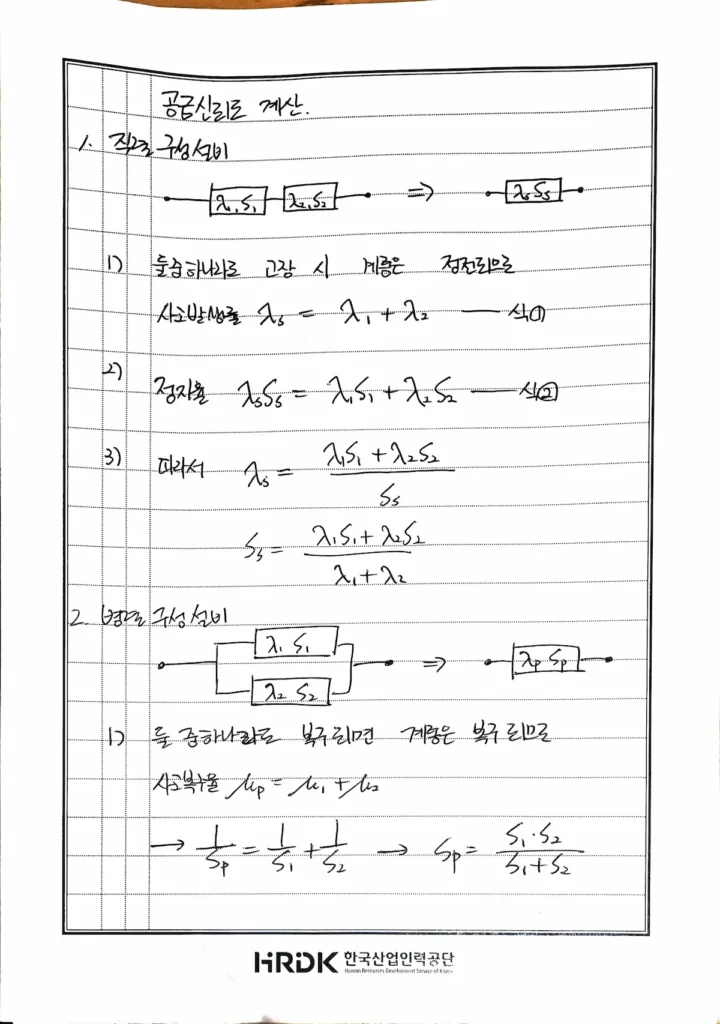 공급신뢰도 계산.
1. 직렬 구성설비
λ₁, S₁ λ₂, S₂ ⇒ λs Ss
1) 둘중하나라도 고장 시 계통은 정전되므로
사고발생률 λs = λ₁ + λ₂ — 식①
2) 정지율 λsSs = λ₁S₁ + λ₂S₂ — 식②
3) 따라서 λs = (λ₁S₁ + λ₂S₂) / Ss
Ss = (λ₁S₁ + λ₂S₂) / (λ₁ + λ₂)
2. 병렬 구성설비
λ₁ S₁
λ₂ S₂ ⇒ λp Sp
1) 둘 중하나라도 복구되면 계통은 복구되므로
사고복구율 μp = μ₁ + μ₂
→ 1/Sp = 1/S₁ + 1/S₂ → Sp = (S₁·S₂) / (S₁+S₂)
HRDK 한국산업인력공단
Human Resources Development Service of Korea